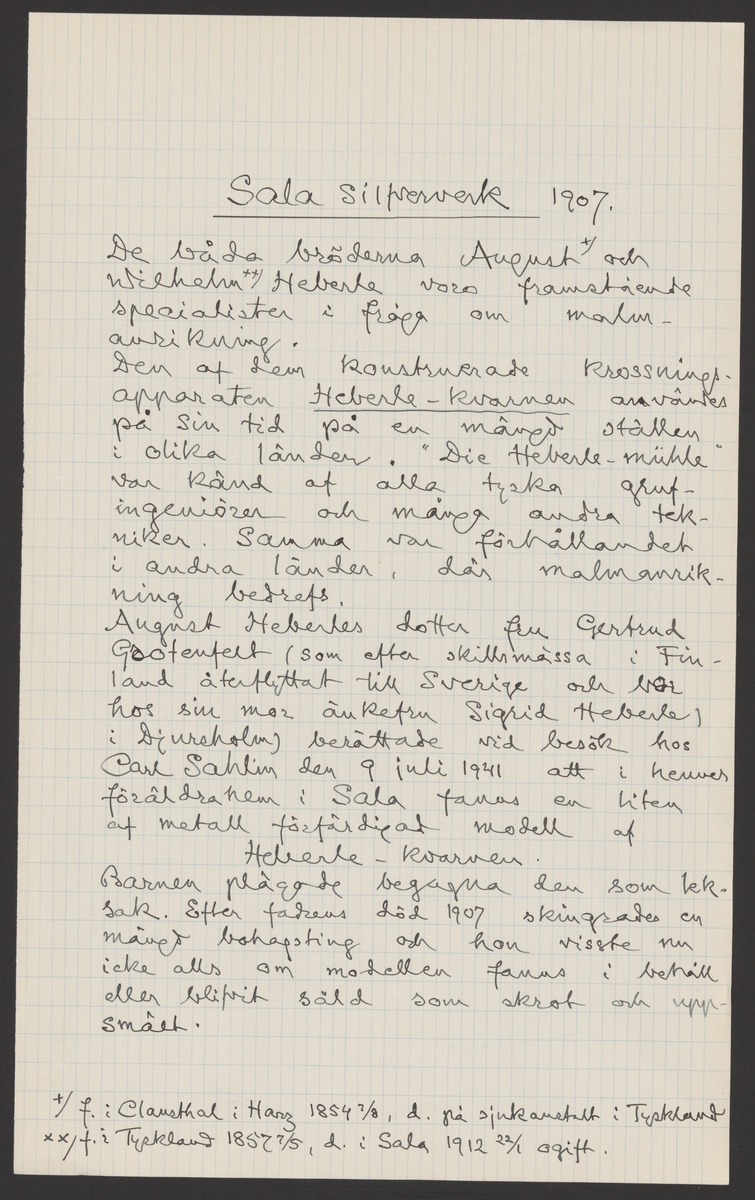 Sala Silfververk 1907.
De båda bröderna August +/ och
Wilhelm ++/ Heberle voro framstående
specialister i fråga om malm-
anrikning.
Den af dem konstruerade krossnings-
apparaten Heberle-kvarnen användes
på sin tid på en mängd ställen
i olika länder. "Die Heberle-mühle"
var känd af alla tyska gruf-
ingeniörer och många andra tek-
niker. Samma var förhållandet
i andra länder, där malmanrik-
ning bedrefs.
August Heberles dotter fru Gertrud
Grotenfelt (som efter skillsmässa i Fin-
land återflyttat till Sverige och bor
hos sin mor änkefru Sigrid Heberle)
i Djursholm) berättade vid besök hos
Carl Sahlin den 9 juli 1941 att i hennes
föräldrahem i Sala fanns en liten
af metall förfärdigad modell af
Heberle-kvarnen.
Barnen plägade begagna den som lek-
sak. Efter faderns död 1907 skingrades en
mängd bohagsting och hon visste nu
icke alls om modellen fanns i behåll
eller blifvit såld som skrot och upp-
smält.
+/ f. i Clausthal i Harz 1854 7/8, d. på sjukanstalt i Tyskland
xx/ f. i Tyskland 1857 7/5, d. i Sala 1912 22/1 ogift.